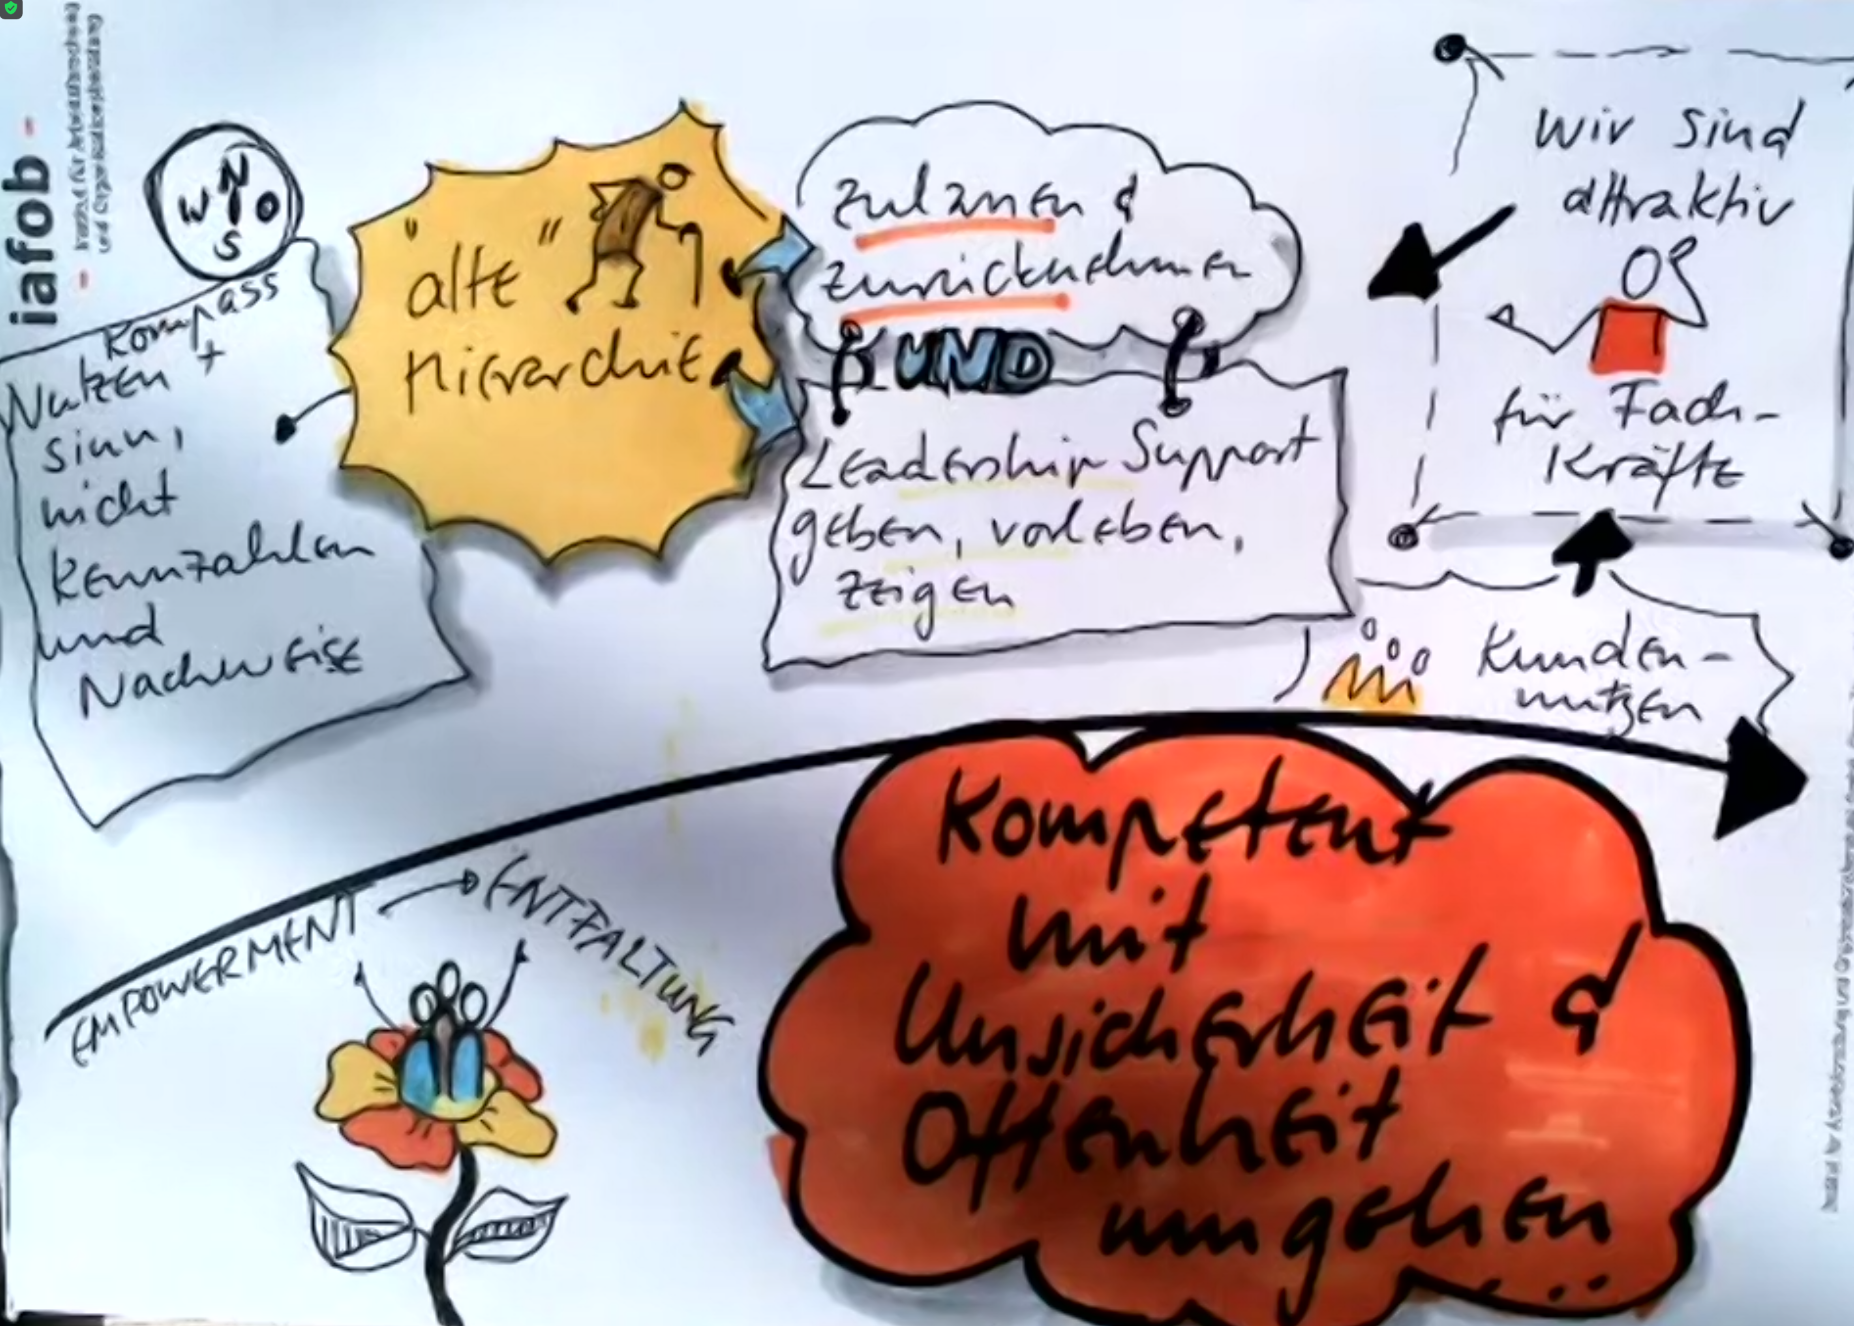 iafob
Institut für Arbeitsforschung
und Organisationsberatung
N
W O
S
Kompass
Nutzen +
Sinn,
nicht
Kennzahlen
und
Nachweise
"alte"
Hierarchie
Zulassen &
zurücknehmen
UND
Leadership Support
geben, vorleben,
zeigen
Wir sind
attraktiv
für Fach-
Kräfte
Kunden-
nutzen
EMPOWERMENT
ENTFALTUNG
Kompetent
mit
Unsicherheit &
Offenheit
umgehen